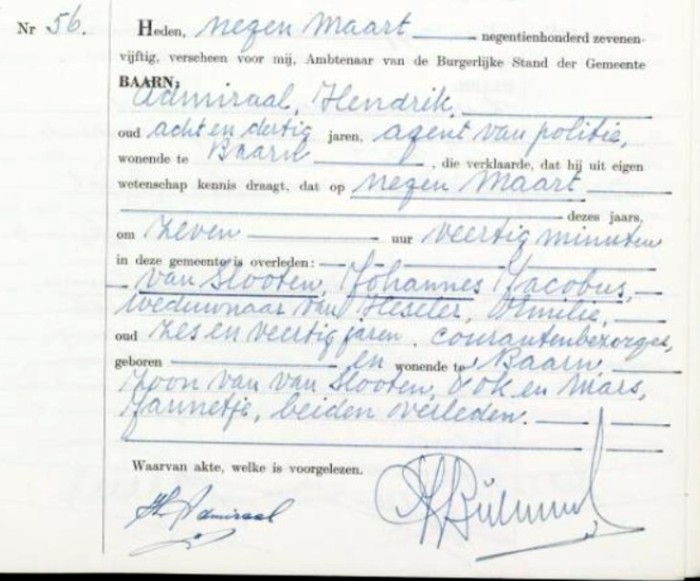 Nr 56. Heden, negen Maart negentienhonderd zevenen-
vijftig, verscheen voor mij, Ambtenaar van de Burgerlijke Stand der Gemeente
BAARN:
Admiraal, Hendrik,
oud acht en dertig jaren, agent van politie,
wonende te Baarn, die verklaarde, dat hij uit eigen
wetenschap kennis draagt, dat op negen Maart
dezes jaars,
om zeven uur veertig minuten
in deze gemeente is overleden:
van Slooten, Johannes Jacobus,
weduwnaar van Heseler, Emilie,
oud zes en veertig jaren, courantenbezorger,
geboren en wonende te Baarn,
zoon van van Slooten, en Mars,
Jannetje, beiden overleden.
Waarvan akte, welke is voorgelezen.
H. Admiraal